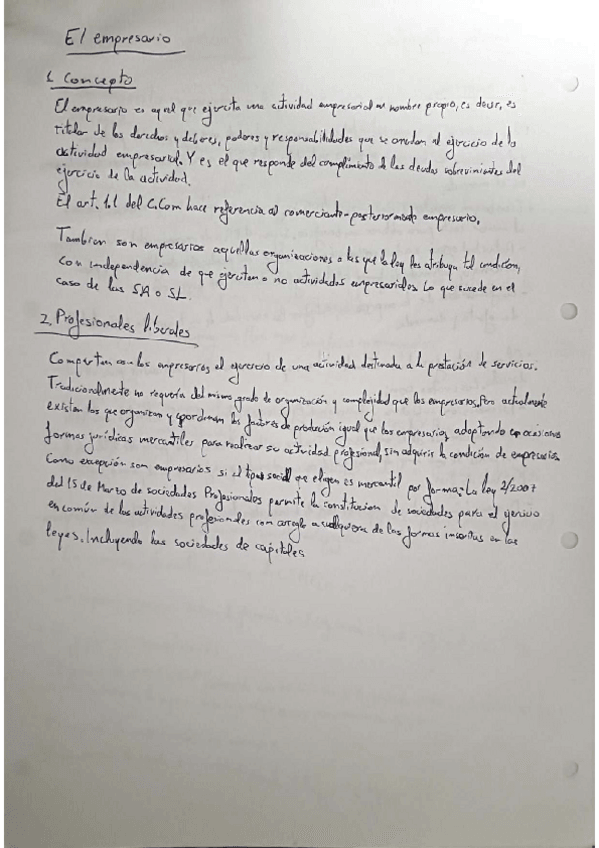 El empresario
1. Concepto
El empresario es aquel que ejercita una actividad empresarial en nombre propio, es decir, es
titular de los derechos y deberes, poderes y responsabilidades que se anudan al ejercicio de la
actividad empresarial. Y es el que responde del cumplimiento de las deudas sobrevinientes del
ejercicio de la actividad.
El art. 1.1 del C.Com hace referencia al comerciante-posteriormente empresario.
Tambien son empresarios aquellas organizaciones a las que la ley les atribuya tal condición,
con independencia de que ejerciten o no actividades empresariales. Lo que sucede en el
caso de las SA o SL.
2. Profesionales liberales
Comparten con los empresarios el ejercicio de una actividad destinada a la prestación de servicios.
Tradicionalmente no requería del mismo grado de organización y complejidad que los empresarios. Pero actualmente
existen los que organizan y coordinan los factores de producción igual que los empresarios, adoptando en ocasiones
formas jurídicas mercantiles para realizar su actividad profesional, sin adquirir la condición de empresarios
Como excepción son empresarios si el tipo social que eligen es mercantil por forma. La ley 2/2007
del 15 de Marzo de sociedades Profesionales permite la constitucion de sociedades para el
en común de las actividades profesionales con arreglo a cualquiera de las formas inscritas en las
leyes. Incluyendo las sociedades de capitales